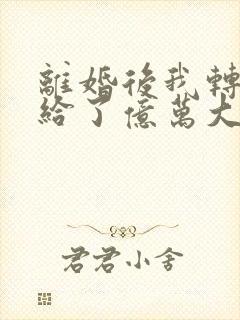 離婚後我轉
給了億萬大
君君小舍